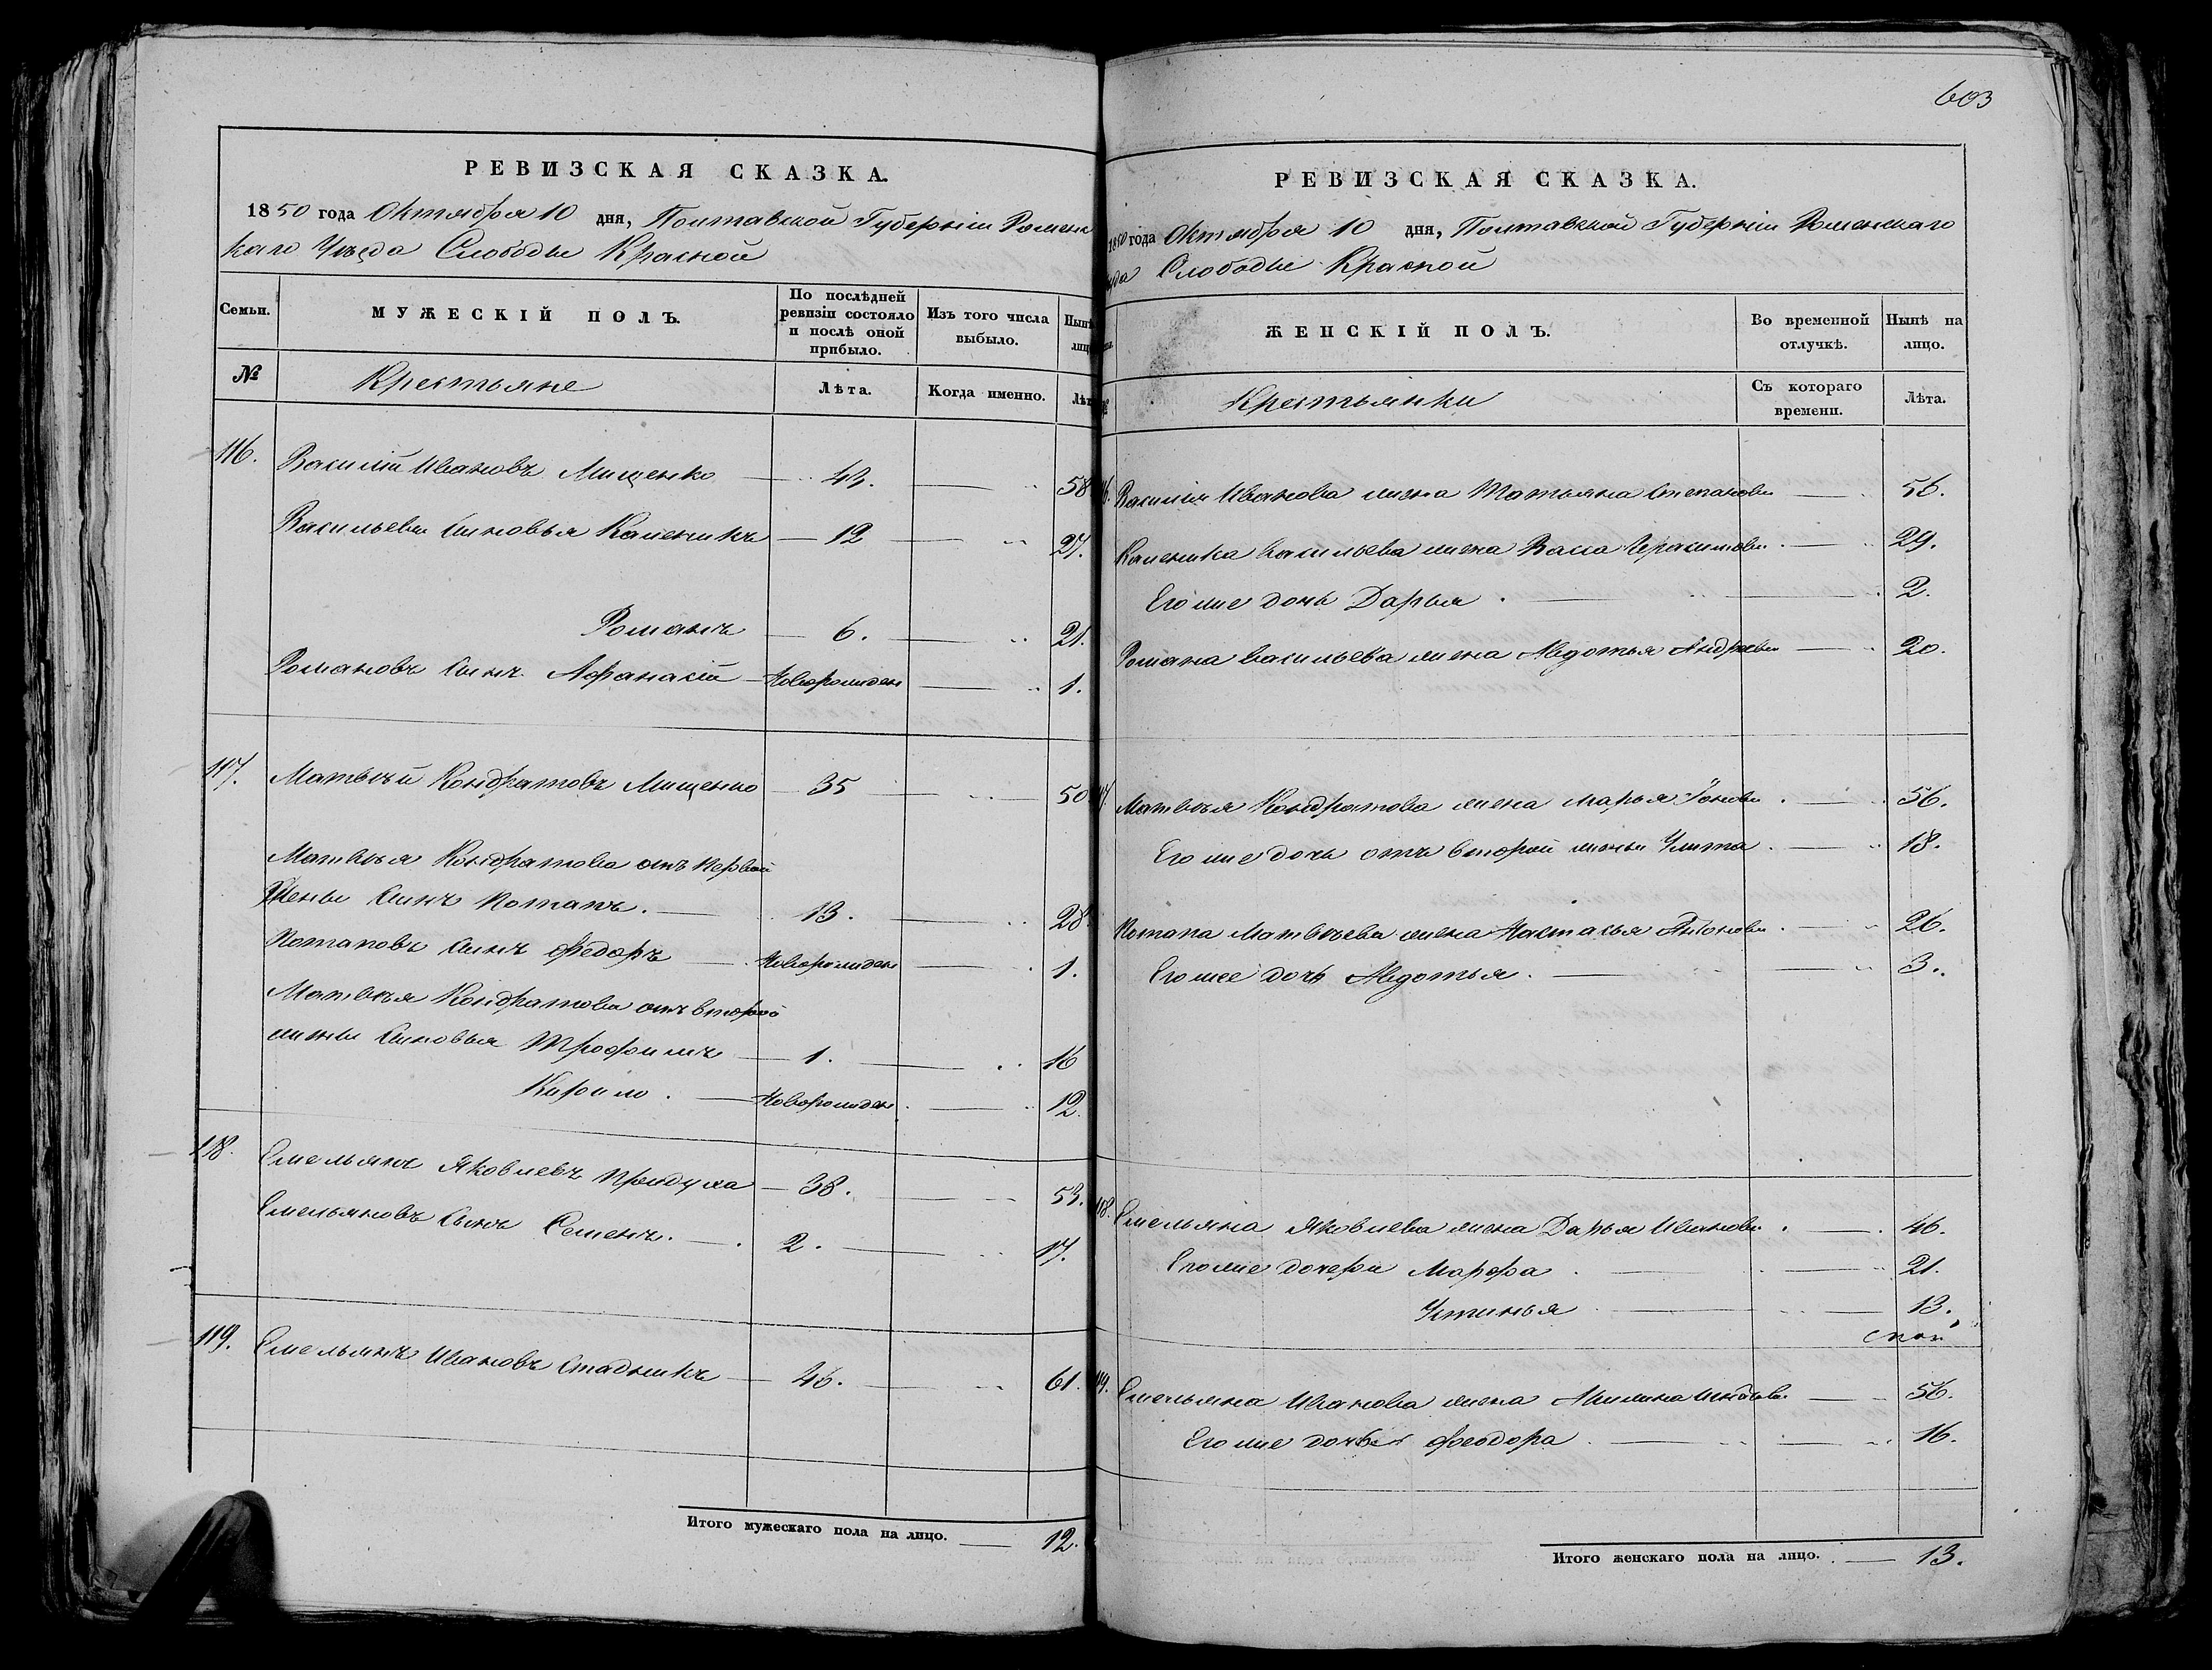 РЕВИЗСКАЯ СКАЗКА.
1850 года Октября 10 дня, Полтавской Губерніи Роменс
каго Уѣзда Слободы Красной
Семьи.
МУЖЕСКІЙ ПОЛЪ.
По послѣдней ревизіи состояло и послѣ оной прибыло.
Изъ того числа выбыло.
Нынѣ лицо
№
Крестьяне
Лѣта.
Когда именно.
Лѣт
116. Василій Ивановъ Мищенко 43. 58
Васильевы сыновья Каленикъ 12 27.
Романъ 6. 21.
Романовъ сынъ Афанасій Новорожден 1.
117. Матвѣй Кондратовъ Мищенко 35 50
Матвѣя Кондратова отъ первой
Жены сынъ Потапъ. 13. 28
Потаповъ сынъ Федоръ Новорожден 1.
Матвѣя Кондратова отъ второй
жены сыновья Трофимъ 1. 16
Кирило. Новорожден. 12.
118. Емельянъ Яковлевъ 38. 53.
Емельяновъ сынъ Семенъ. 2. 17.
119. Емельянъ Ивановъ Стадникъ 46. 61.
Итого мужескаго пола на лицо. 12.
603
РЕВИЗСКАЯ СКАЗКА.
1850 года Октября 10 дня, Полтавской Губерніи Роменскаго
ѣзда Слободы Красной
ЖЕНСКІЙ ПОЛЪ.
Во временной отлучкѣ.
Нынѣ на лицо.
Крестьянки
Съ котораго времени.
Лѣта.
Василія Иванова жена Татьяна Степанова 56.
Каленика Васильева жена Васса Герасимова 29.
Его же дочь Дарья. 2.
Романа Васильева жена Авдотья Андреева 20.
Матвѣя Кондратова жена Марья 56.
Его же дочь отъ второй жены Улита. 18.
Потапа Матвѣева жена Настасья Антонова. 26.
Его же дочь Авдотья. 3.
118. Емельяна Яковлева жена Дарья Иванова. 46.
Его же дочери Марфа 21.
Устинья 13.
Емельяна Иванова жена Акилина 56.
Его же дочь Феодора 16.
Итого женскаго пола на лицо. 13.